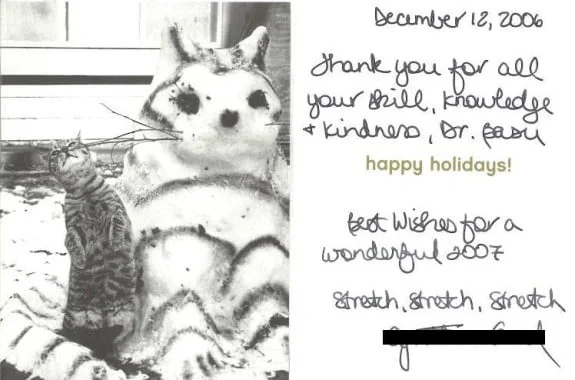 December 12, 2006
Thank you for all
your skill, knowledge
+ kindness, Dr. Basu
happy holidays!
Best Wishes for a
wonderful 2007
Stretch, Stretch, Stretch